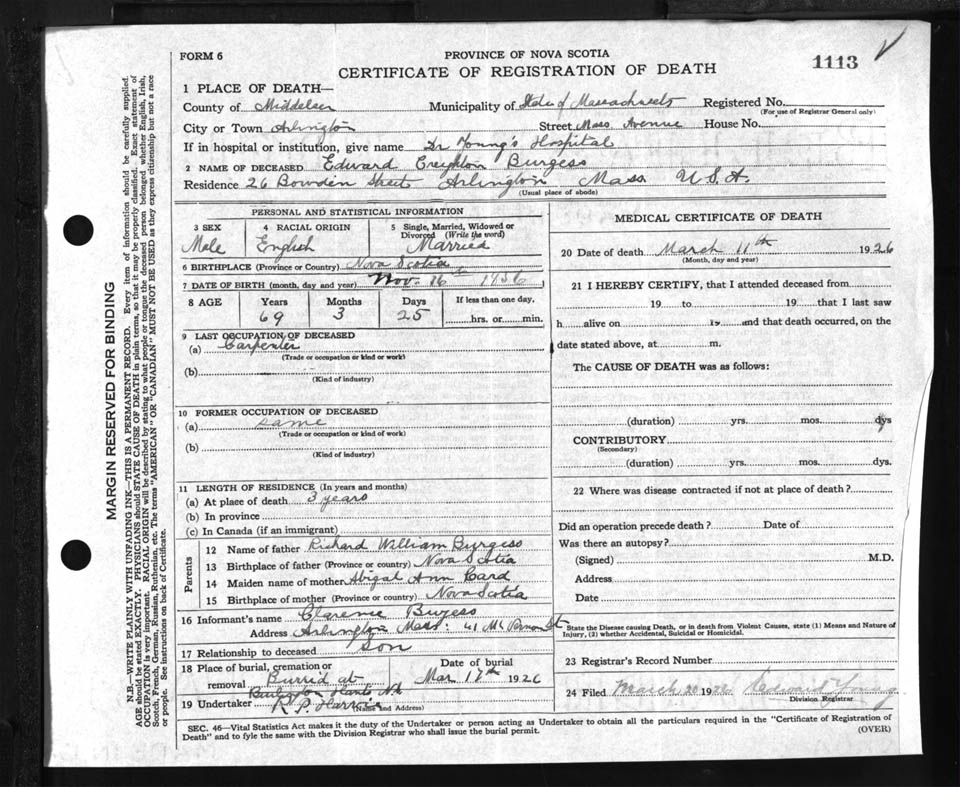 FORM 6
PROVINCE OF NOVA SCOTIA
CERTIFICATE OF REGISTRATION OF DEATH
1113
1 PLACE OF DEATH—
County of Middelsex Municipality of State of Massachusets Registered No.
(For use of Registrar General only)
City or Town Arlington Street Mass Avenue House No.
If in hospital or institution, give name Dr Young's Hospital
2 NAME OF DECEASED Edward Creighton Burgess
Residence 26 Bowden Street Arlington Mass U.S.A.
(Usual place of abode)
PERSONAL AND STATISTICAL INFORMATION
3 SEX 4 RACIAL ORIGIN 5 Single, Married, Widowed or Divorced (Write the word)
Male English Married
6 BIRTHPLACE (Province or Country) Nova Scotia
7 DATE OF BIRTH (month, day and year) Nov. 16 1856
8 AGE Years Months Days If less than one day,
69 3 25 hrs. or min.
9 LAST OCCUPATION OF DECEASED
(a) Carpenter
(Trade or occupation or kind or work)
(b)
(Kind of industry)
10 FORMER OCCUPATION OF DECEASED
(a) same
(Trade or occupation or kind of work)
(b)
(Kind of industry)
11 LENGTH OF RESIDENCE (In years and months)
(a) At place of death 3 years
(b) In province
(c) In Canada (if an immigrant)
Parents
12 Name of father Richard William Burgess
13 Birthplace of father (Province or country) Nova Scotia
14 Maiden name of mother Abigal Ann Card
15 Birthplace of mother (Province or country) Nova Scotia
16 Informant's name Clarence Burgess
Address Arlington Mass. 41 Mt Vernon St
17 Relationship to deceased Son
18 Place of burial, cremation or removal Date of burial
Burried at Mar 17th 1926
Burlington Hants N.S.
19 Undertaker R. P. Harvie
(Name and Address)
MEDICAL CERTIFICATE OF DEATH
20 Date of death March 11th 1926
(Month, day and year)
21 I HEREBY CERTIFY, that I attended deceased from
19 to 19 that I last saw
h alive on 19 and that death occurred, on the
date stated above, at m.
The CAUSE OF DEATH was as follows:
(duration) yrs. mos. dys
CONTRIBUTORY
(Secondary)
(duration) yrs. mos. dys.
22 Where was disease contracted if not at place of death?
Did an operation precede death? Date of
Was there an autopsy?
(Signed) M.D.
Address
Date
State the Disease causing Death, or in death from Violent Causes, state (1) Means and Nature of
Injury, (2) whether Accidental, Suicidal or Homicidal.
23 Registrar's Record Number
24 Filed March 20 1926 Young
Division Registrar
SEC. 46—Vital Statistics Act makes it the duty of the Undertaker or person acting as Undertaker to obtain all the particulars required in the "Certificate of Registration of
Death" and to fyle the same with the Division Registrar who shall issue the burial permit.
(OVER)
MARGIN RESERVED FOR BINDING
N.B.—WRITE PLAINLY WITH UNFADING INK—THIS IS A PERMANENT RECORD. Every item of information should be carefully supplied.
AGE should be stated EXACTLY. PHYSICIANS should STATE CAUSE OF DEATH in plain terms, so that it may be properly classified. Exact statement of
OCCUPATION is very important. RACIAL ORIGIN will be described by stating to what people or tongue the deceased person belonged whether English, Irish,
Scotch, French, German, Russian, Ruthenian, etc. The terms "AMERICAN" OR "CANADIAN" MUST NOT BE USED as they express citizenship but not a race
or people. See instructions on back of Certificate.